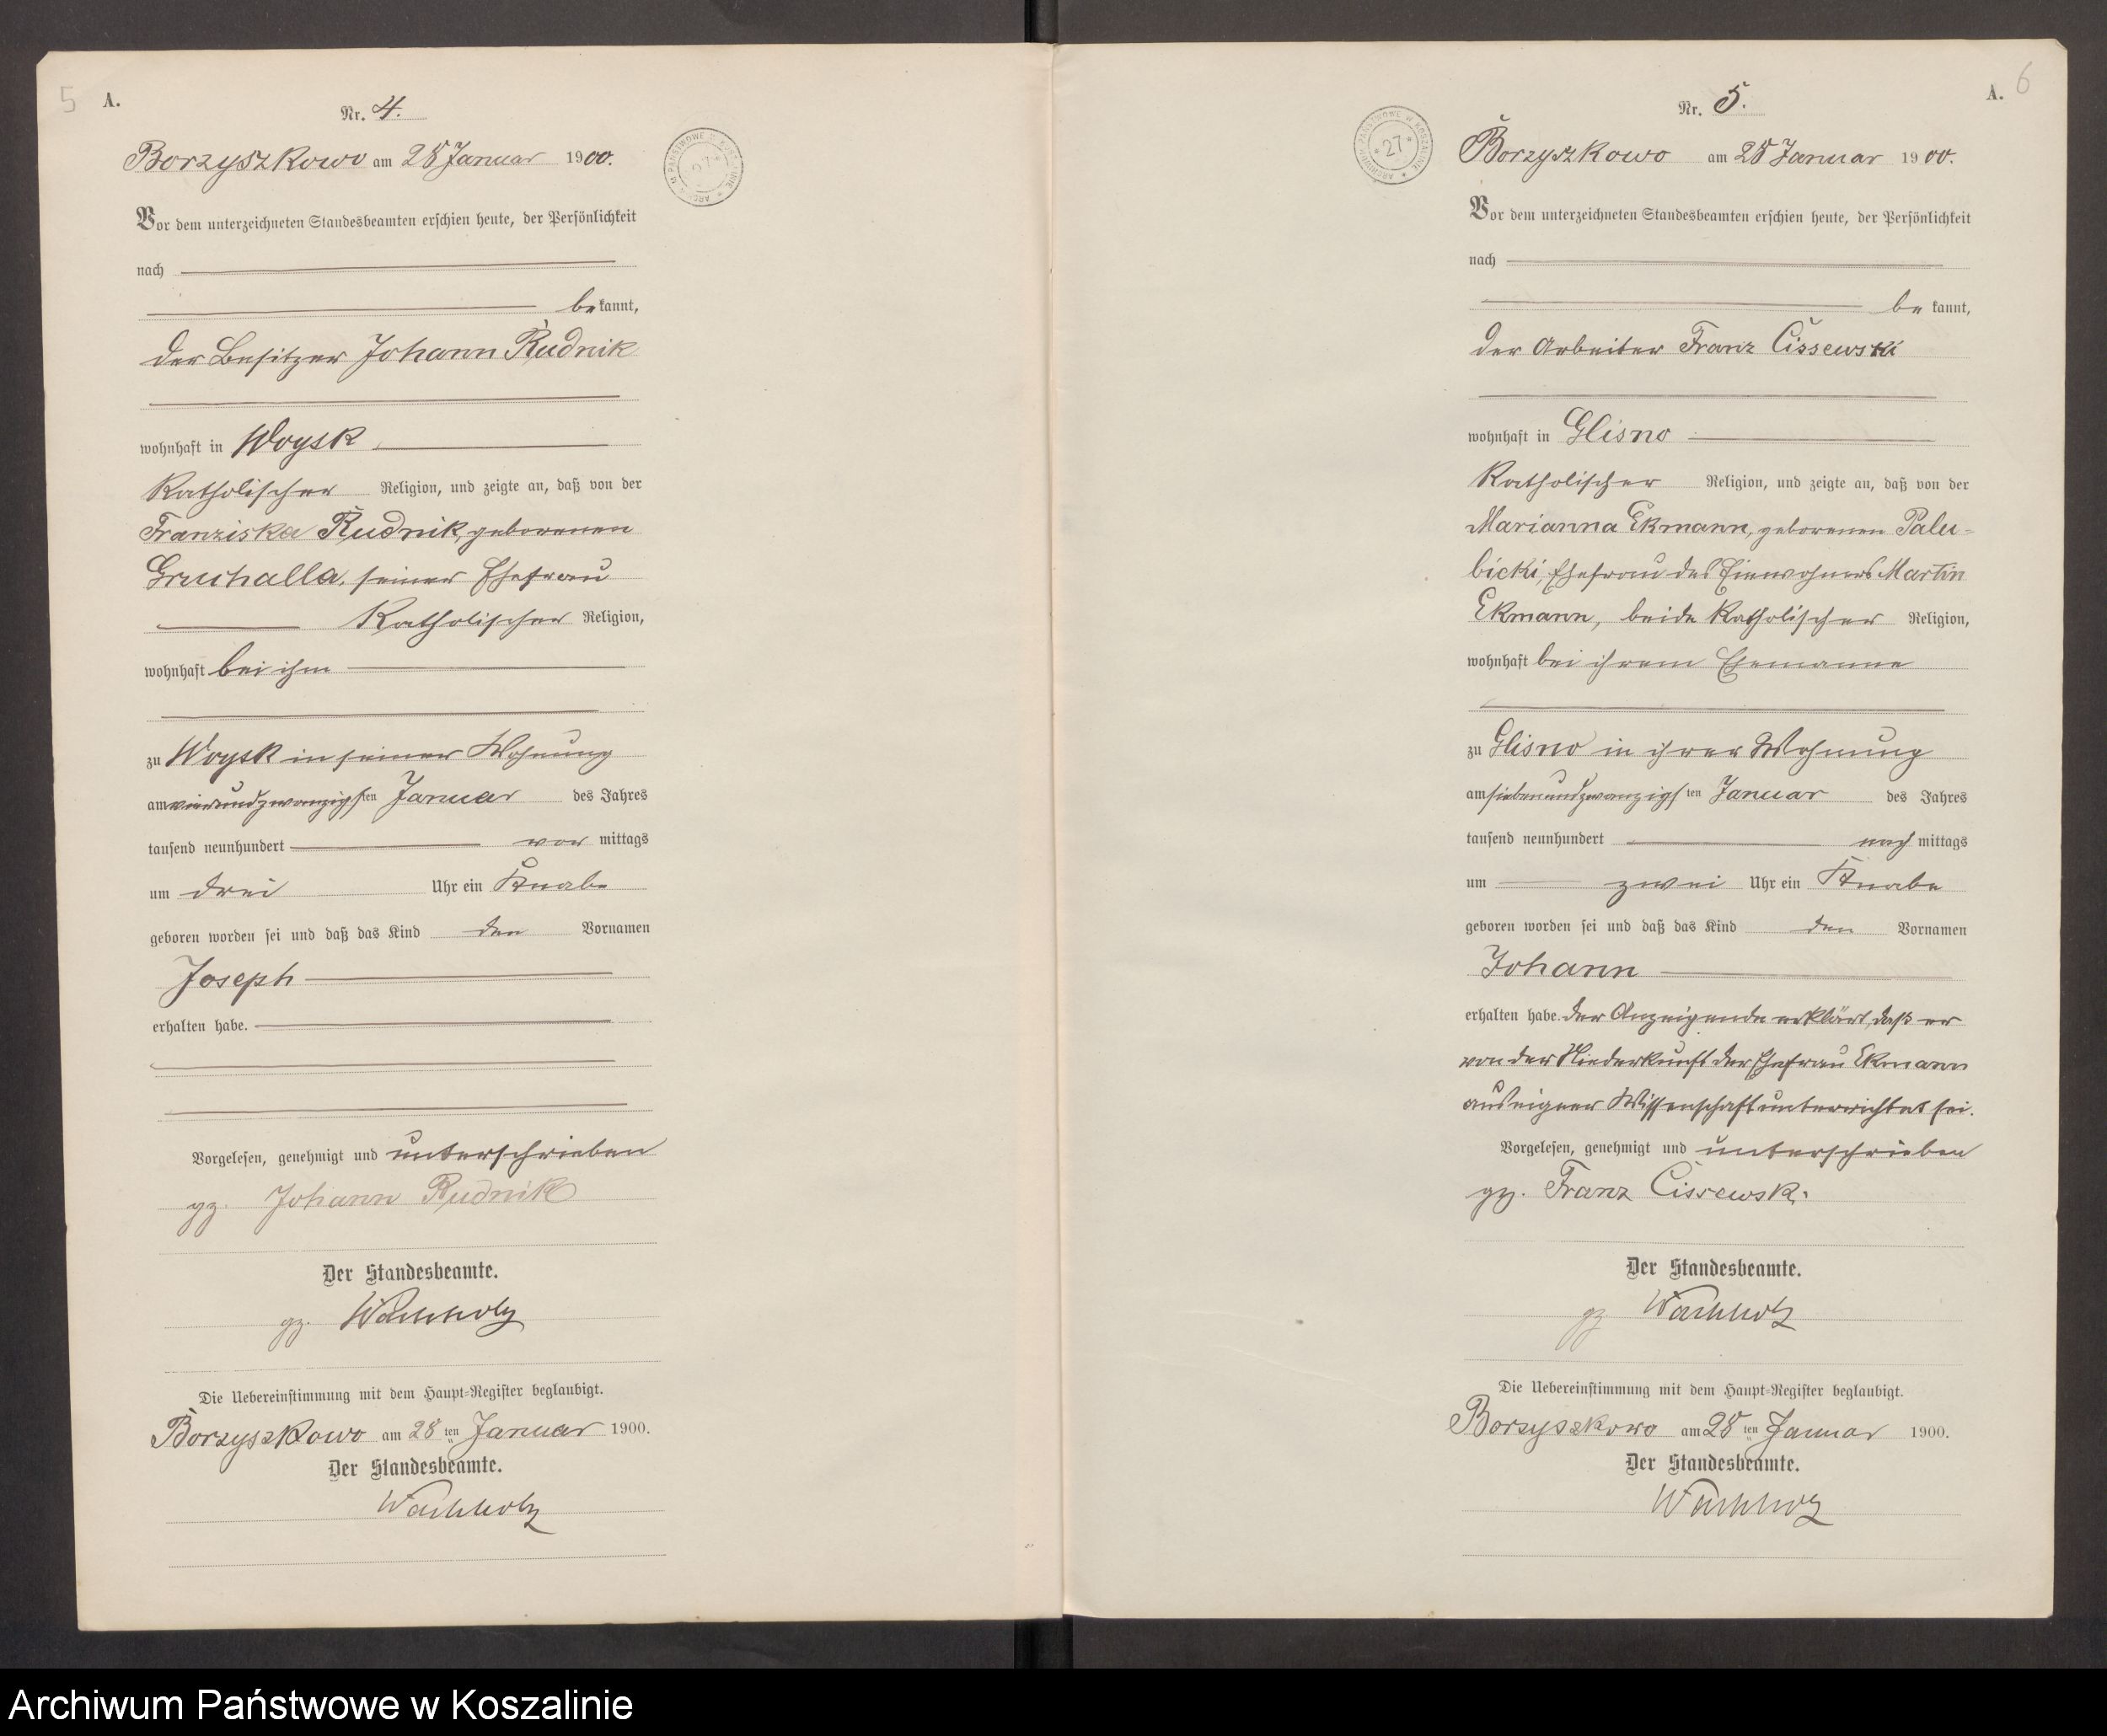 5 A.
Nr. 4.
Borzyszkowo am 28 Januar 1900.
Vor dem unterzeichneten Standesbeamten erschien heute, der Persönlichkeit
nach
bekannt,
der Besitzer Johann Rudnik
wohnhaft in Woysk
Katholischer Religion, und zeigte an, daß von der
Franziska Rudnik, geborenen
Gruchalla, seiner Ehefrau
Katholischer Religion,
wohnhaft bei ihm
zu Woysk in seiner Wohnung
am vierundzwanzigsten Januar des Jahres
tausend neunhundert vor mittags
um drei Uhr ein Knabe
geboren worden sei und daß das Kind den Vornamen
Joseph
erhalten habe.
Vorgelesen, genehmigt und unterschrieben
gz. Johann Rudnik
Der Standesbeamte.
gz. Wachholz
Die Uebereinstimmung mit dem Haupt-Register beglaubigt.
Borzyszkowo am 28 ten Januar 1900.
Der Standesbeamte.
Wachholz
ARCHIWUM PAŃSTWOWE W KOSZALINIE
27
A. 6
Nr. 5.
Borzyszkowo am 28 Januar 1900.
Vor dem unterzeichneten Standesbeamten erschien heute, der Persönlichkeit
nach
bekannt,
der Arbeiter Franz Cissewski
wohnhaft in Glisno
Katholischer Religion, und zeigte an, daß von der
Marianna Ekmann, geborenen Palu-
bicki, Ehefrau des Einwohners Martin
Ekmann, beide Katholischer Religion,
wohnhaft bei ihrem Ehemanne
zu Glisno in ihrer Wohnung
am siebenundzwanzigsten Januar des Jahres
tausend neunhundert nach mittags
um zwei Uhr ein Knabe
geboren worden sei und daß das Kind den Vornamen
Johann
erhalten habe. Der Anzeigende erklärt, daß er
von der Niederkunft der Ehefrau Ekmann
aus eigner Wissenschaft unterrichtet sei.
Vorgelesen, genehmigt und unterschrieben
gz. Franz Cissewski
Der Standesbeamte.
gz Wachholz
Die Uebereinstimmung mit dem Haupt-Register beglaubigt.
Borzyszkowo am 28 ten Januar 1900.
Der Standesbeamte.
Wachholz
Archiwum Państwowe w Koszalinie